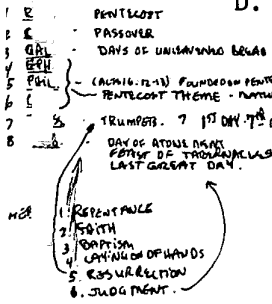 D.
1 R - PENTECOST
2 - PASSOVER
3 GAL - DAYS OF UNLEAVENED BREAD
4 EPH
5 PHIL - (ACTS 16.12-13) FOUNDED ON PENTE
6 - PENTECOST THEME -
7 - TRUMPETS. ? 1ST DAY 7TH
8 - DAY OF ATONEMENT
FEAST OF TABERNACLES
LAST GREAT DAY.
1. REPENTANCE
2. FAITH
3 BAPTISM
4 LAYING ON OF HANDS
5. RESURRECTION
6. JUDGMENT.